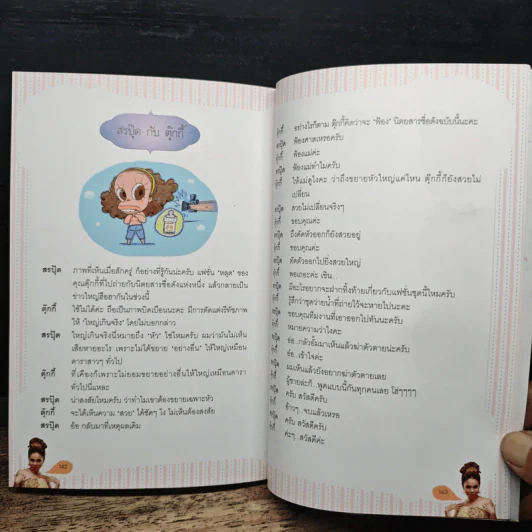 สรปุ๊ด กับ ตุ๊กกี้
สรปุ๊ด ภาพที่เห็นเมื่อสักครู่ ก็อย่างที่รู้กันน่ะครับ แฟชั่น "หลุด" ของ
คุณตุ๊กกี้ที่ไปถ่ายกับนิตยสารชื่อดังแห่งหนึ่ง แล้วกลายเป็น
ข่าวใหญ่สื่อสากันในช่วงนี้
ตุ๊กกี้ ใช้ไม่ได้ค่ะ ถือเป็นภาพบิดเบือนนะคะ มีการตัดแต่งรีทัชภาพ
ให้ "ใหญ่เกินจริง" โดยไม่บอกกล่าว
สรปุ๊ด ใหญ่เกินจริงนี่หมายถึง "หัว" ใช่ไหมครับ ผมว่ามันไม่เห็น
เสียหายอะไร เพราะไม่ได้ขยาย "อย่างอื่น" ให้ใหญ่เหมือน
ดาราสาวๆ ทั่วไป
ตุ๊กกี้ ที่เคืองก็เพราะไม่ยอมขยายอย่างอื่นให้ใหญ่เหมือนดารา
ทั่วไปนี่แหละ
สรปุ๊ด น่าสงสัยไหมครับ ว่าทำไมเขาต้องขยายเฉพาะหัว
ตุ๊กกี้ จะได้เห็นความ "สวย" ได้ชัดๆ ไง ไม่เห็นต้องสงสัย
สรปุ๊ด อ้อ กลับมาที่เหตุผลเดิม
142
ตุ๊กกี้ อย่างไรก็ตาม ตุ๊กกี้คิดว่าจะ "ฟ้อง" นิตยสารชื่อดังฉบับนี้นะคะ
ฟ้องศาลเหรอครับ
ตุ๊กกี้ ฟ้องแม่ค่ะ
ฟ้องแม่ทำไมครับ
ตุ๊กกี้ ให้แม่ดูไงคะ ว่าถึงขยายหัวใหญ่แค่ไหน ตุ๊กกี้ก็ยังสวยไม่
เปลี่ยน
สรปุ๊ด สวยไม่เปลี่ยนจริงๆ
ตุ๊กกี้ ขอบคุณค่ะ
สรปุ๊ด ถึงตัดหัวออกก็ยังสวยอยู่
ตุ๊กกี้ ขอบคุณค่ะ
สรปุ๊ด ตัดตัวออกไปยิ่งสวยใหญ่
ตุ๊กกี้ พอเถอะค่ะ เขิน
สรปุ๊ด มีอะไรอยากจะฝากทิ้งท้ายเกี่ยวกับแฟชั่นชุดนี้ไหมครับ
ตุ๊กกี้ รู้สึกว่าชุดว่ายน้ำที่ถ่ายไว้จะหายไปนะคะ
สรปุ๊ด ขอบคุณทีมงานที่เอาออกไปทันนะครับ
ตุ๊กกี้ หมายความว่าไงคะ
สรปุ๊ด อ๋อ...กลัวอั้มมาเห็นแล้วฆ่าตัวตายน่ะครับ
ตุ๊กกี้ อ๋อ...เข้าใจค่ะ
สรปุ๊ด ผมเห็นแล้วยังอยากฆ่าตัวตายเลย
ตุ๊กกี้ ผู้ชายล่ะก็...พูดแบบนี้กันทุกคนเลย โฮ่ๆๆๆๆ
สรปุ๊ด ครับ สวัสดีครับ
ตุ๊กกี้ อ้าวๆ...จบแล้วเหรอ
สรปุ๊ด ครับ สวัสดีครับ
ตุ๊กกี้ ค่ะๆ...สวัสดีค่ะ
143